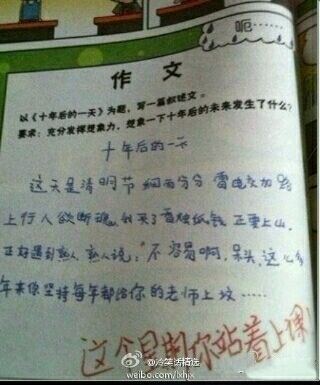 呃……
作文
以《十年后的一天》为题，写一篇叙述文。
要求：充分发挥想象力，想象一下十年后的未来发生了什么？
十年后的一天
这天是清明节 细雨分分 雷电交加 路
上行人欲断魂，我买了香烛纸钱 正要上山，
正好遇到熟人，熟人说："不容易啊，呆头，这么多
年来你坚持每年都给你的老师上坟……
这个星期你站着上课！
@冷笑话精选
weibo.com/lxhjx